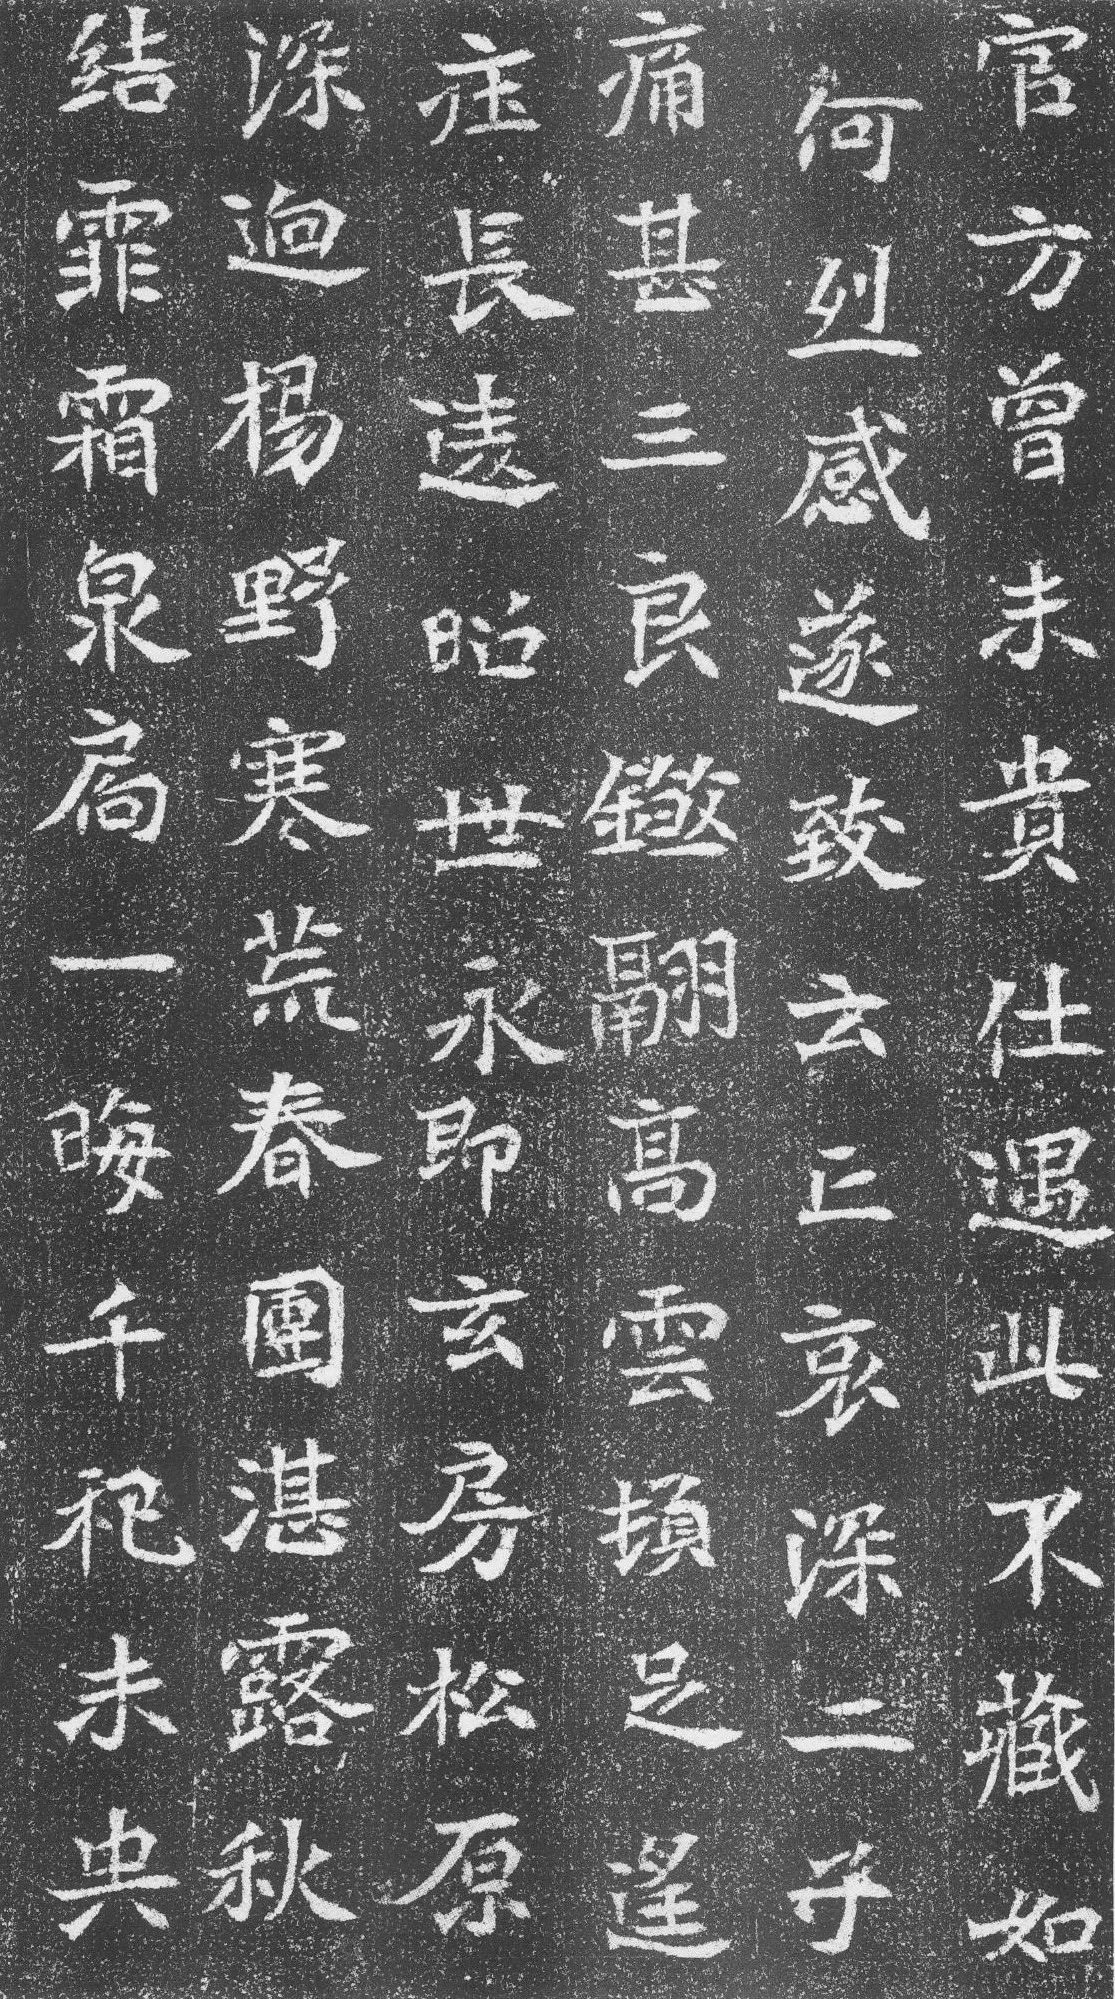 官方曾未貴仕遇此不藏如
何烈感遂致云亡哀深二子
痛甚三良鎩翮高雲頓足遥
庄長逵昭世永即玄房松原
深迥楊野寒荒春團湛露秋
結霏霜泉扃一晦千祀未央